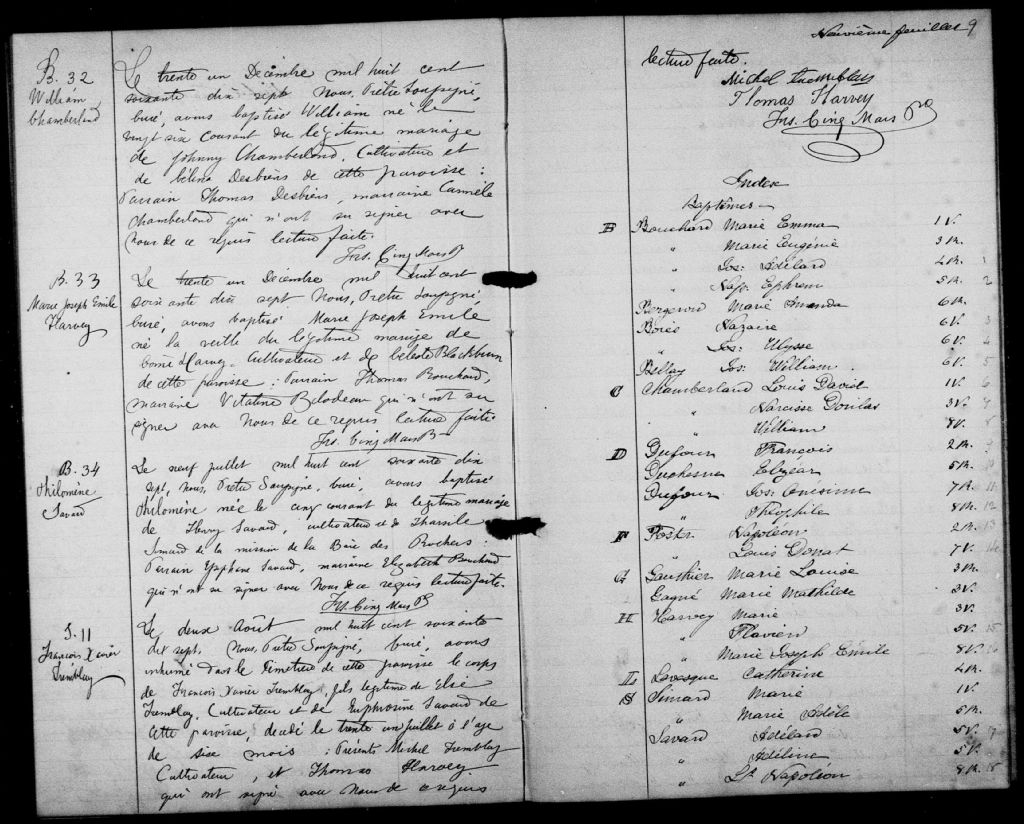 B. 32
William
Chamberland
Le trente un Décembre mil huit cent
soixante dix sept, Nous, Prêtre soussigné,
curé, avons baptisé William né le
vingt six courant du légitime mariage
de Johnny Chamberland, Cultivateur et
de Célina Desbiens de cette paroisse :
Parrain Thomas Desbiens, marraine
Chamberland qui n'ont su signer avec
nous de ce requis lecture faite.
Jns. Cinq Mars Ptre
B. 33
Marie Joseph Emile
Harvey
Le trente un Décembre mil huit cent
soixante dix sept Nous, Prêtre soussigné,
curé, avons baptisé Marie Joseph Emile
né la veille du légitime mariage de
Come Harvey Cultivateur et de Celeste Blackburn
de cette paroisse : Parrain Thomas Bouchard,
marraine Vitaline Bilodeau qui n'ont su
signer avec Nous de ce requis lecture faite
Jns. Cinq Mars Ptre
B. 34
Philomène
Savard
Le neuf juillet mil huit cent soixante dix
sept, nous, Prêtre Soussigné, curé, avons baptisé
Philomène née le cinq courant du légitime mariage
de Henry Savard, cultivateur et de Tharsile
Simard de la mission de la Baie des Rochers :
Parrain Epiphane Savard, marraine Elizabeth Bouchard
qui n'ont su signer avec Nous de ce requis lecture faite.
Jns. Cinq Mars Ptre
S. 11
François Xavier
Tremblay
Le deux Août mil huit cent soixante
dix sept, Nous, Prêtre Soussigné, curé, avons
inhumé dans le Cimetière de cette paroisse le corps
de François Xavier Tremblay, fils légitime de Elie
Tremblay, Cultivateur et de Euphrosine Savard de
cette paroisse, decedé le trente un juillet à l'age
de six mois : Présents Michel Tremblay
Cultivateur, et Thomas Harvey.
qui ont signé avec Nous de ce requis
Neuvième feuillet 9
lecture faite.
Michel Tremblay
Thomas Harvey
Jns. Cinq Mars Ptre
Index
Baptêmes
B Bouchard Marie Emma 1V.
" Marie Eugénie 3R.
" Jos: Adélard 4R. 1
" Nap. Ephrem 5R. 2
Bergeron Marie Amanda 6R.
Boies Nazaire 6V. 3
" Jos: Ulysse 6V. 4
Bellay Jos: William 6V. 5
C Chamberland Louis David 1V. 6
" Narcisse Donilas 3V. 7
" William 8V. 8
D Dufour François 2R. 9
Duchesne Elzéar 5R. 10
Dufour Jos: Onésime 7R. 11
" Théophile 8R. 12
F Foster Napoléon 2R. 13
" Louis Donat 7V. 14
G Gauthier Marie Louise 3R.
Gagné Marie Mathilde 3V.
H Harvey Marie 3V.
" Flavien 5V. 15
" Marie Joseph Emile 8V. 16
L Levesque Catherine 4R.
S Simard Marie 1V.
" Marie Adèle 6R.
Savard Adélard 5V. 17
" Adéline 5V.
" Ls. Napoléon 8R. 18